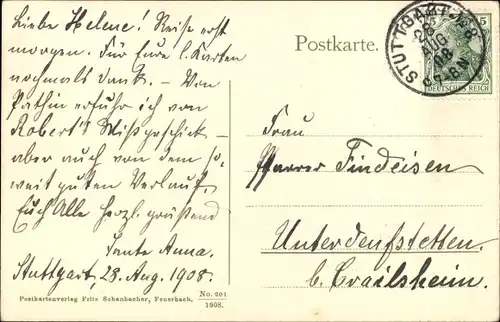 Liebe Helene! Reise erst
morgen. Für Eure l. Karten
nochmals Dank. – Von
Pathin erfuhr ich von
Robert's Mißgeschick –
aber auch von dem so-
weit guten Verlauf.
Euch Alle herzl. grüßend
Tante Anna.
Stuttgart, 28. Aug. 1908.
Postkartenverlag Fritz Schanbacher, Feuerbach.
No. 201
1908.
Postkarte.
STUTTGART No 8
28
AUG
08
7-8 N.
5
DEUTSCHES REICH
Frau
Pfarrer Findeisen
Unterdeufstetten
b. Crailsheim.